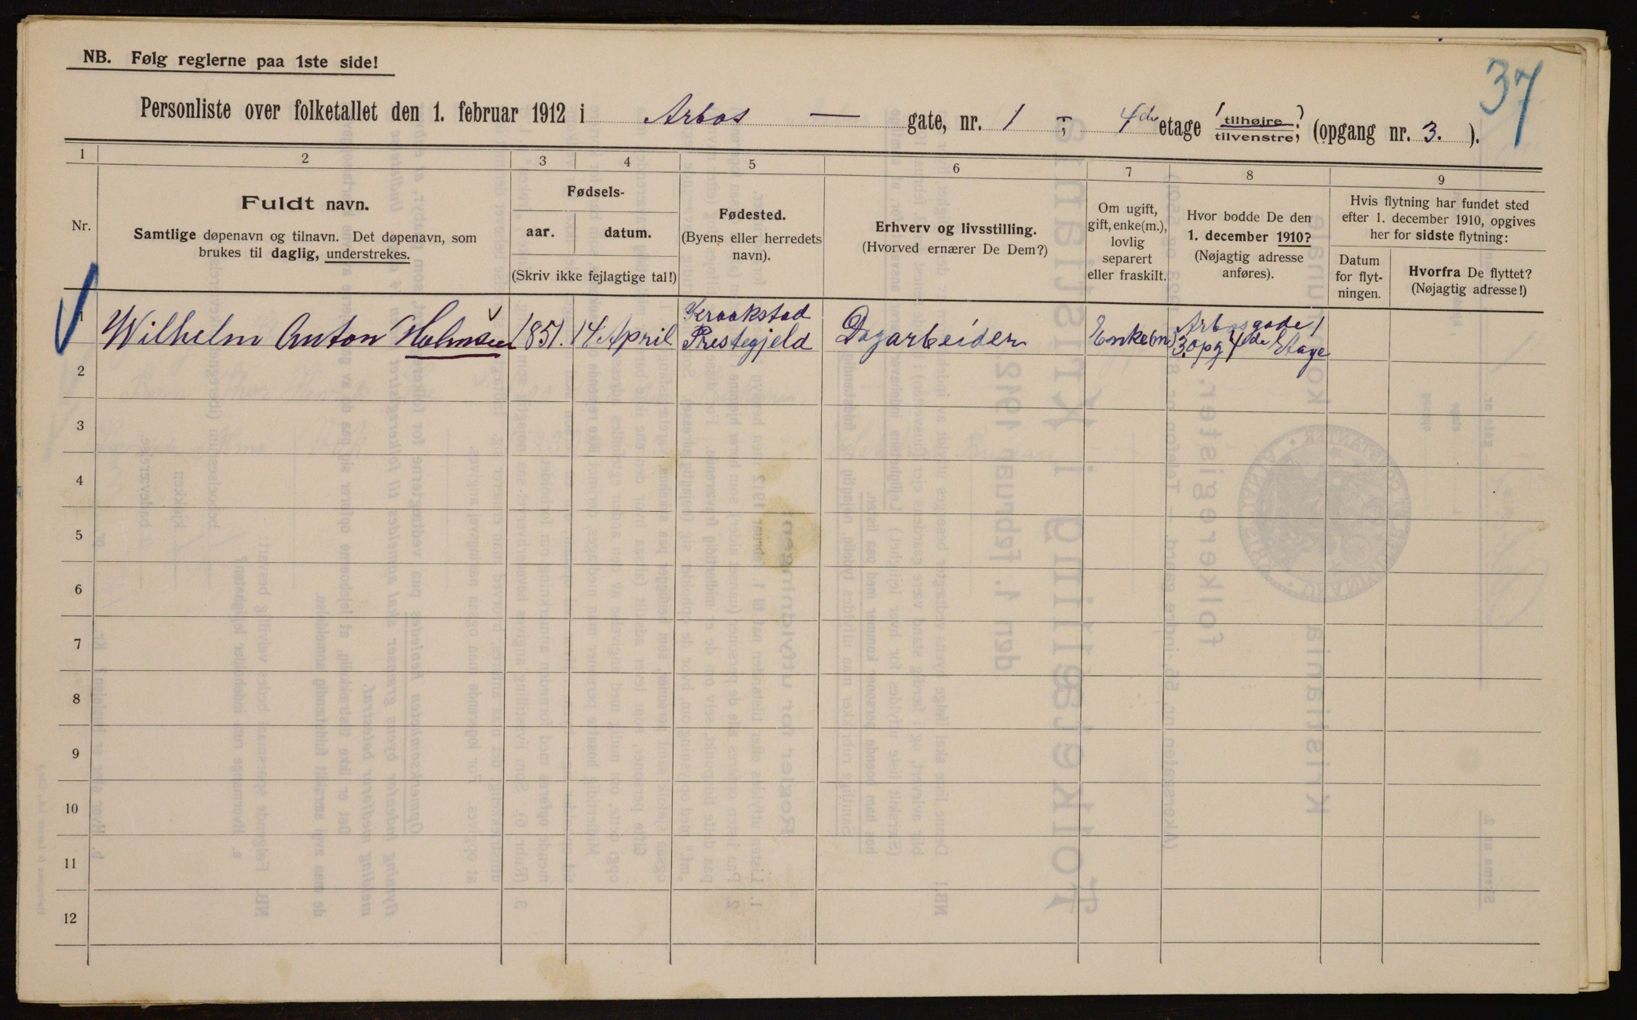 NB. Følg reglerne paa 1ste side!
37
Personliste over folketallet den 1. februar 1912 i Arbos — gate, nr. 1 ; 4de etage ( tilhøire / tilvenstre, ? ) (opgang nr. 3. ).
1 2 3 4 5 6 7 8 9
Nr.
Fuldt navn.
Samtlige døpenavn og tilnavn. Det døpenavn, som
brukes til daglig, understrekes.
Fødsels-
aar. datum.
(Skriv ikke fejlagtige tal!)
Fødested.
(Byens eller herredets
navn).
Erhverv og livsstilling.
(Hvorved ernærer De Dem?)
Om ugift,
gift, enke(m.),
lovlig
separert
eller fraskilt.
Hvor bodde De den
1. december 1910?
(Nøjagtig adresse
anføres).
Hvis flytning har fundet sted
efter 1. december 1910, opgives
her for sidste flytning:
Datum
for flyt-
ningen.
Hvorfra De flyttet?
(Nøjagtig adresse!)
1 Wilhelm Anton Holmsen 1851. 14 April Kraakstad Prestegjeld Dagarbeider Enke(m) Arbosgade 1 3. opg 4de Etage
2
3
4
5
6
7
8
9
10
11
12